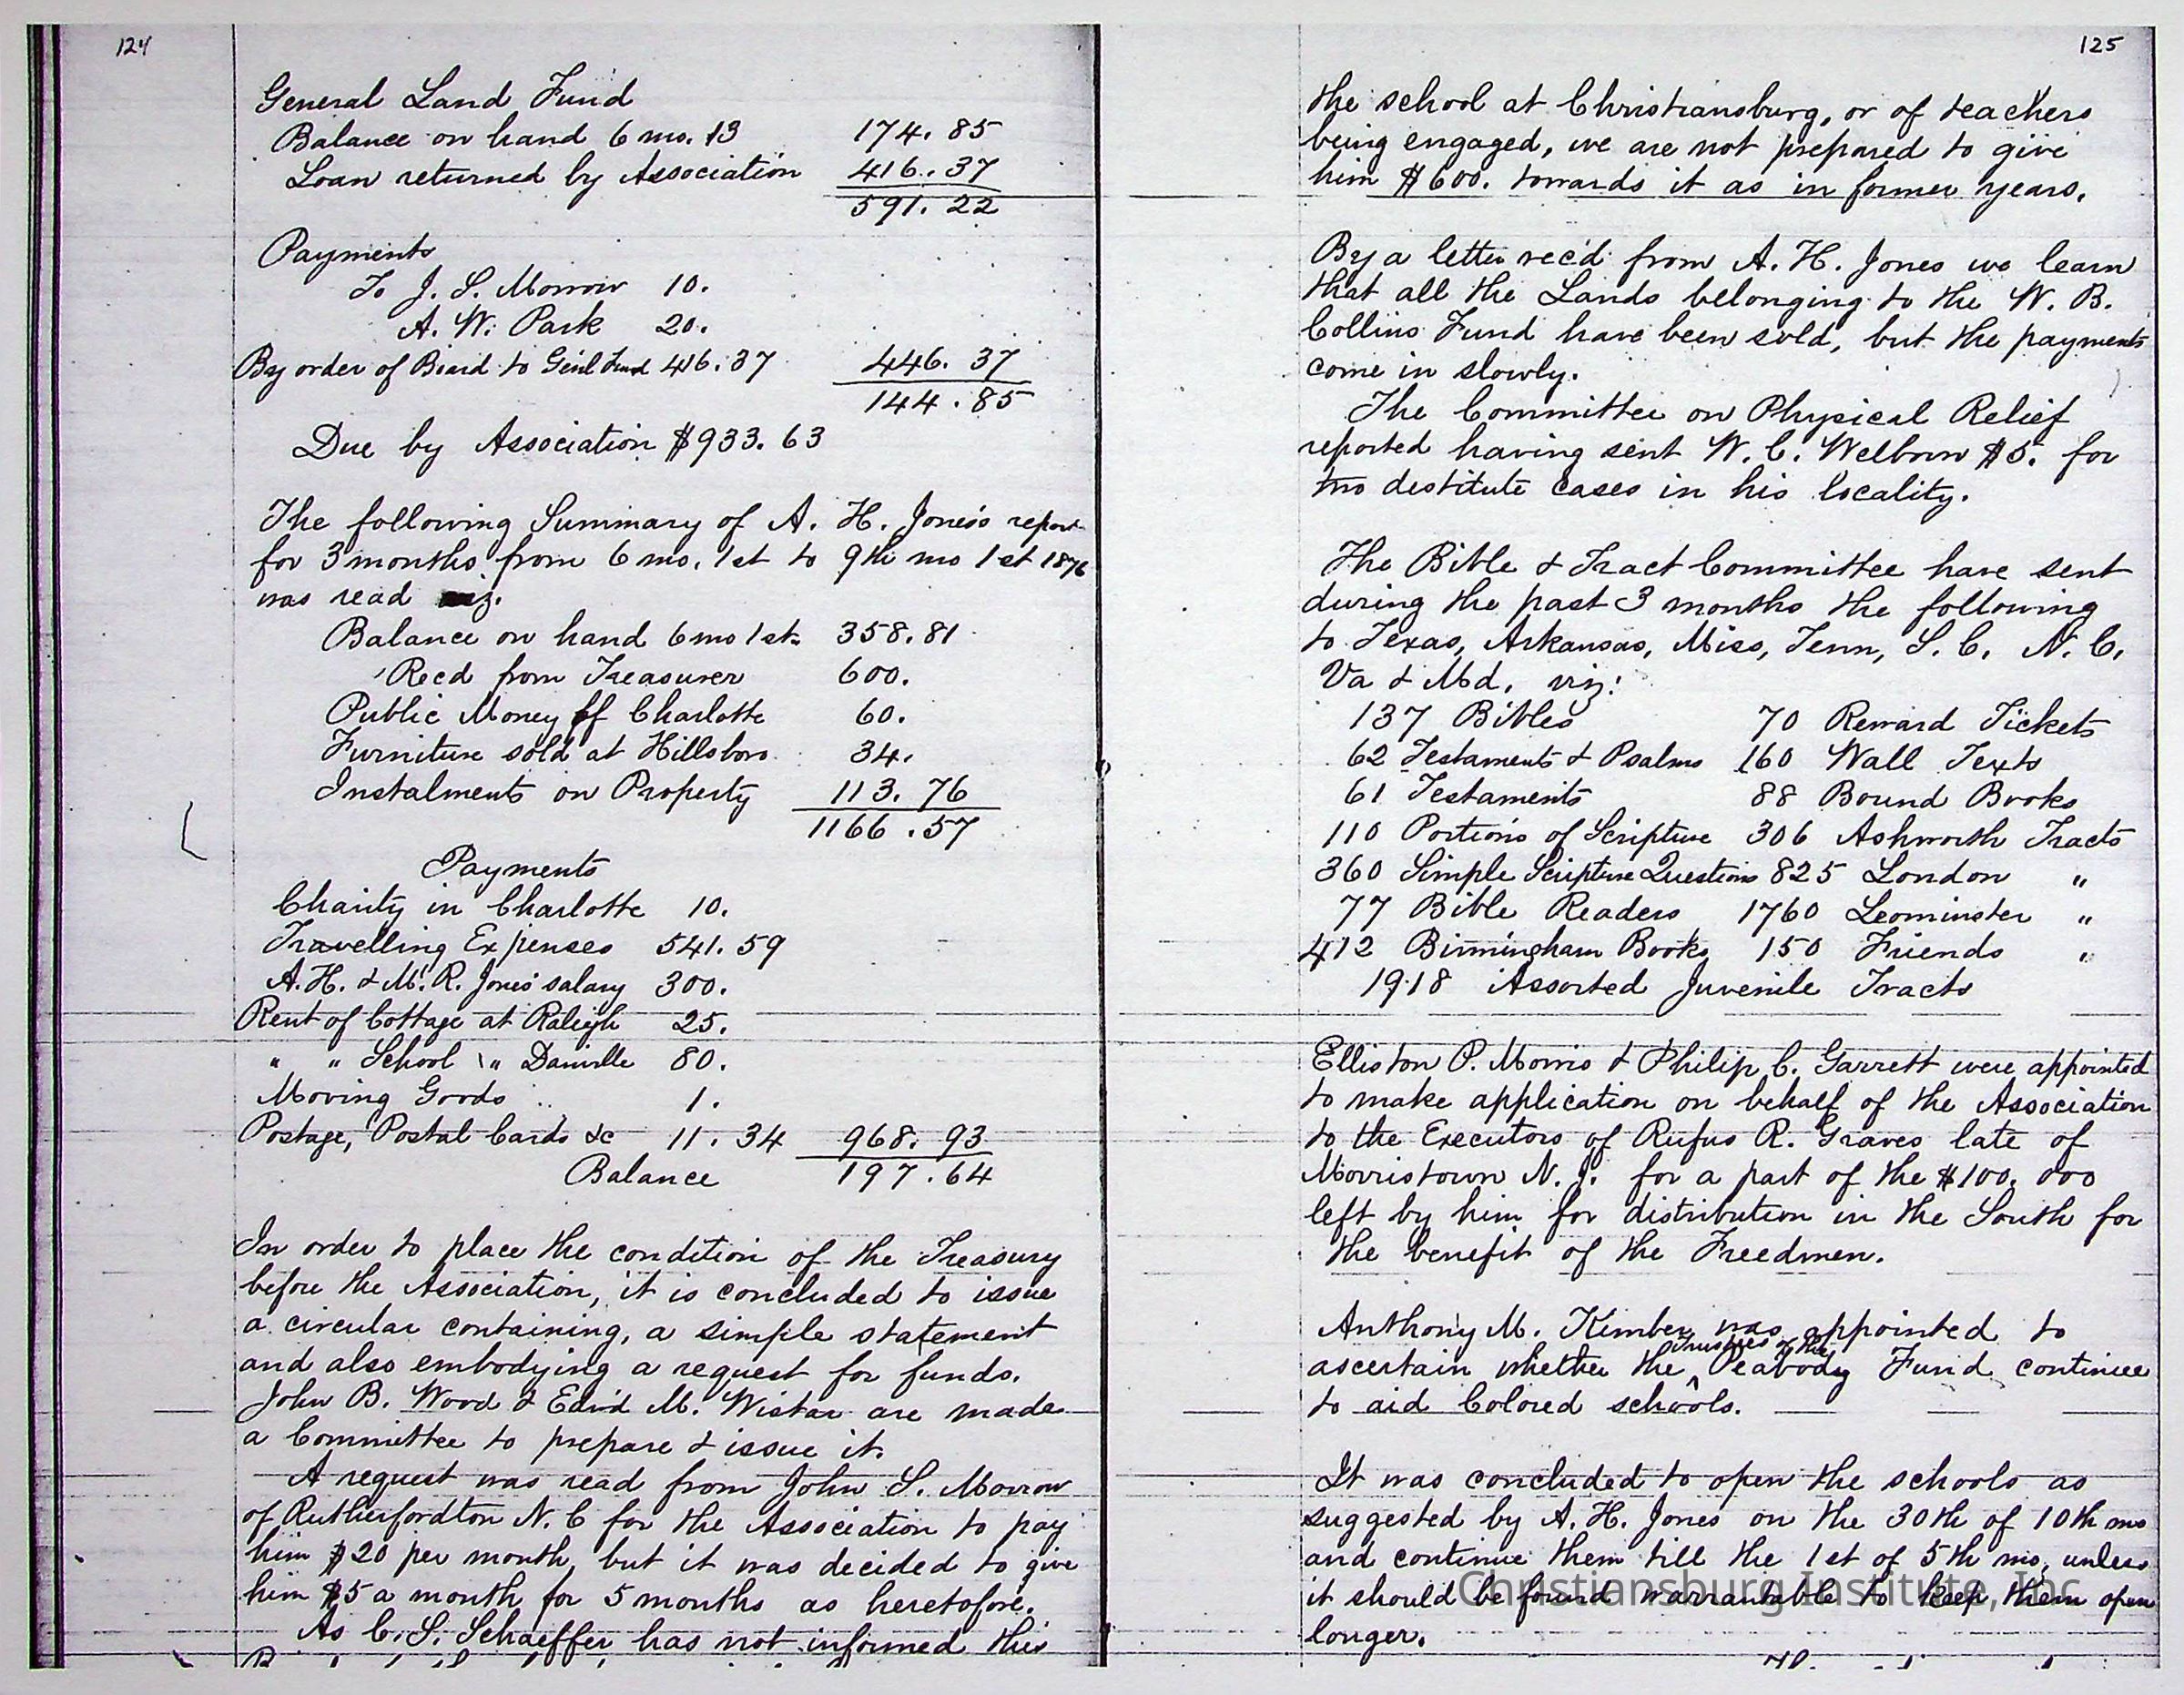 124
General Land Fund
Balance on hand 6 mo. 13 174. 85
Loan returned by Association 416. 37
591. 22
Payments
To J. S. Morrow 10.
A. W. Park 20.
By order of Board to Genl Fund 416. 37 446. 37
144. 85
Due by Association $933. 63
The following Summary of A. H. Jones's report
for 3 months from 6 mo. 1st to 9th mo 1st 1876
was read viz.
Balance on hand 6 mo 1st. 358. 81
Recd from Treasurer 600.
Public Money of Charlotte 60.
Furniture sold at Hillsboro 34.
Instalments on Property 113. 76
1166 . 57
Payments
Charity in Charlotte 10.
Travelling Expenses 541. 59
A. H. & M. R. Jones' salary 300.
Rent of Cottage at Raleigh 25.
" " School " Danville 80.
Moving Goods 1.
Postage, Postal Cards &c 11. 34 968. 93
Balance 197. 64
In order to place the condition of the Treasury
before the Association, it is concluded to issue
a circular containing, a simple statement
and also embodying a request for funds.
John B. Wood & Edw'd M. Wistar are made
a Committee to prepare & issue it.
A request was read from John S. Morrow
of Rutherfordton N. C for the Association to pay
him $20 per month, but it was decided to give
him $5 a month for 5 months as heretofore.
As C. S. Schaeffer has not informed this
125
the school at Christiansburg, or of teachers
being engaged, we are not prepared to give
him $600. towards it as in former years.
By a letter rec'd from A. H. Jones we learn
that all the Lands belonging to the W. B.
Collins Fund have been sold, but the payments
come in slowly.
The Committee on Physical Relief
reported having sent W. C. Welborn $5. for
two destitute cases in his locality.
The Bible & Tract Committee have sent
during the past 3 months the following
to Texas, Arkansas, Miss, Tenn, S. C. N. C.
Va & Md. viz:
137 Bibles 70 Reward Tickets
62 Testaments & Psalms 160 Wall Texts
61 Testaments 88 Bound Books
110 Portions of Scripture 306 Ashworth Tracts
360 Simple Scripture Questions 825 London "
77 Bible Readers 1760 Leominster "
412 Birmingham Books 150 Friends "
1918 Assorted Juvenile Tracts
Elliston P. Morris & Philip C. Garrett were appointed
to make application on behalf of the Association
to the Executors of Rufus R. Graves late of
Morristown N. J. for a part of the $100. 000
left by him for distribution in the South for
the benefit of the Freedmen.
Anthony M. Kimber was appointed to
ascertain whether the Trustees of the Peabody Fund continue
to aid Colored schools.
It was concluded to open the schools as
suggested by A. H. Jones on the 30th of 10th mo
and continue them till the 1st of 5th mo, unless
it should be found warrantable to keep them open
longer.
Christiansburg Institute, Inc.